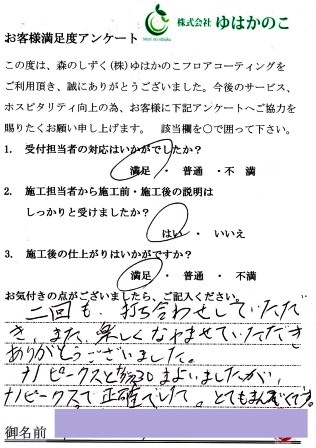 株式会社 ゆはかのこ
お客様満足度アンケート
この度は、森のしずく(株)ゆはかのこフロアコーティングを
ご利用頂き、誠にありがとうございました。今後のサービス、
ホスピタリティ向上の為、お客様に下記アンケートへご協力を
賜りたくお願い申し上げます。 該当欄を○で囲って下さい。
1. 受付担当者の対応はいかがでしたか?
満足 ・ 普通 ・不 満
2. 施工担当者から施工前・施工後の説明は
しっかりと受けましたか?
はい ・ いいえ
3. 施工後の仕上がりはいかがですか?
満足 ・ 普通 ・ 不満
お気付きの点がございましたら、ご記入ください。
二回も、打ち合わせしていただ
き、また、楽しくなやませていただき
ありがとうございました。
ナノピークスと まよいましたが、
ナノピークスで正確でした。とてもまんぞくです。
御名前